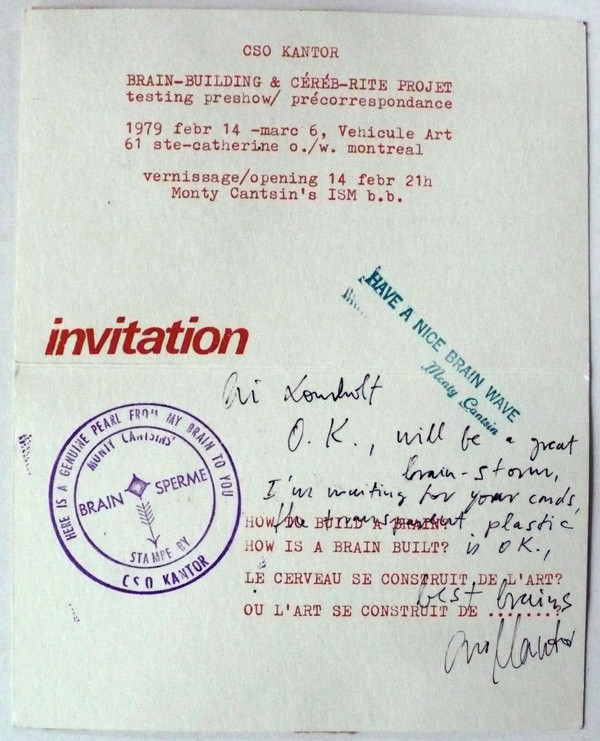 CSO KANTOR
BRAIN-BUILDING & CÉRÉB-RITE PROJET
testing preshow/ précorrespondance
1979 febr 14 -marc 6, Vehicule Art
61 ste-catherine o./w. montreal
vernissage/opening 14 febr 21h
Monty Cantsin's ISM b.b.
HAVE A NICE BRAIN WAVE
Monty Cantsin
invitation
HERE IS A GENUINE PEARL FROM MY BRAIN TO YOU
MONTY CANTSINS'
BRAIN SPERME
STAMPE BY
CSO KANTOR
O.K., will be a great
brain-storm,
I'm waiting for your cards,
the transparent plastic
is OK.,
best brains
HOW TO BUILD A BRAIN?
HOW IS A BRAIN BUILT?
LE CERVEAU SE CONSTRUIT DE L'ART?
OU L'ART SE CONSTRUIT DE .......?